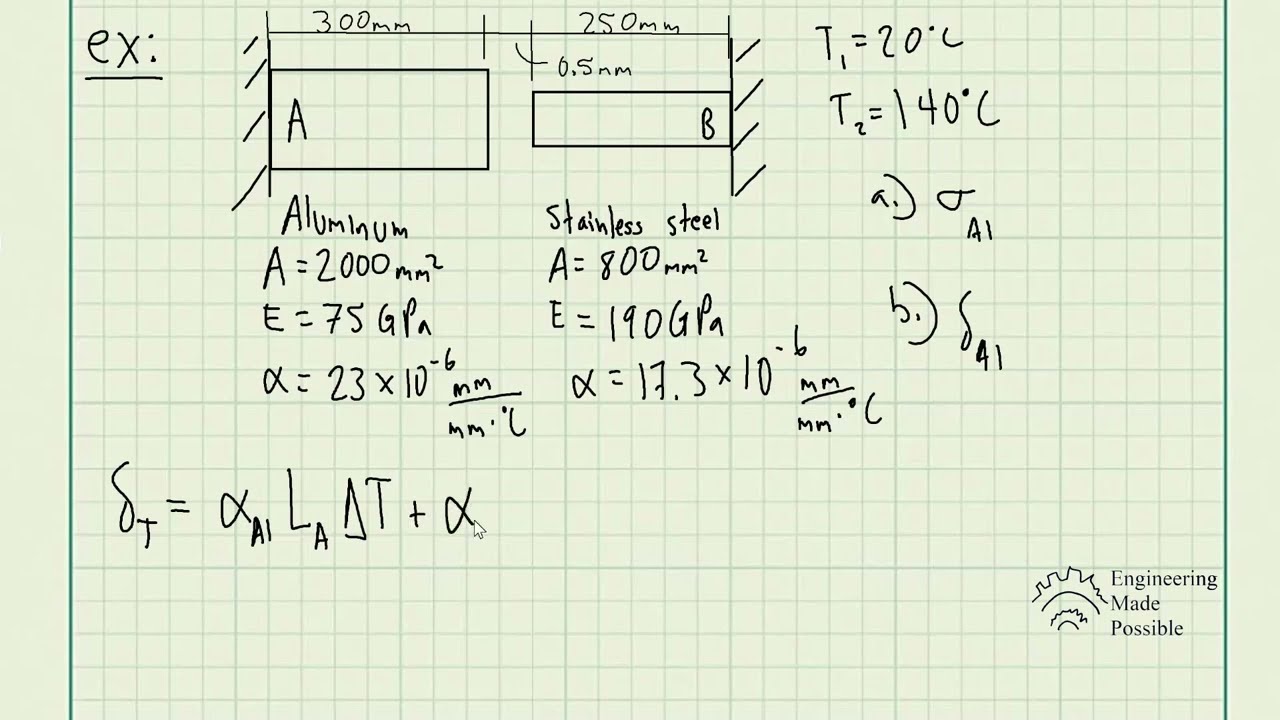 ex:
300mm
250mm
0.5mm
A
B
T₁ = 20°C
T₂ = 140°C
a.) σ_Al
b.) δ_Al
Aluminum
A = 2000 mm²
E = 75 GPa
α = 23 × 10⁻⁶ mm/mm·°C
Stainless steel
A = 800 mm²
E = 190 GPa
α = 17.3 × 10⁻⁶ mm/mm·°C
δ_T = α_Al L_A ΔT + α
Engineering
Made
Possible